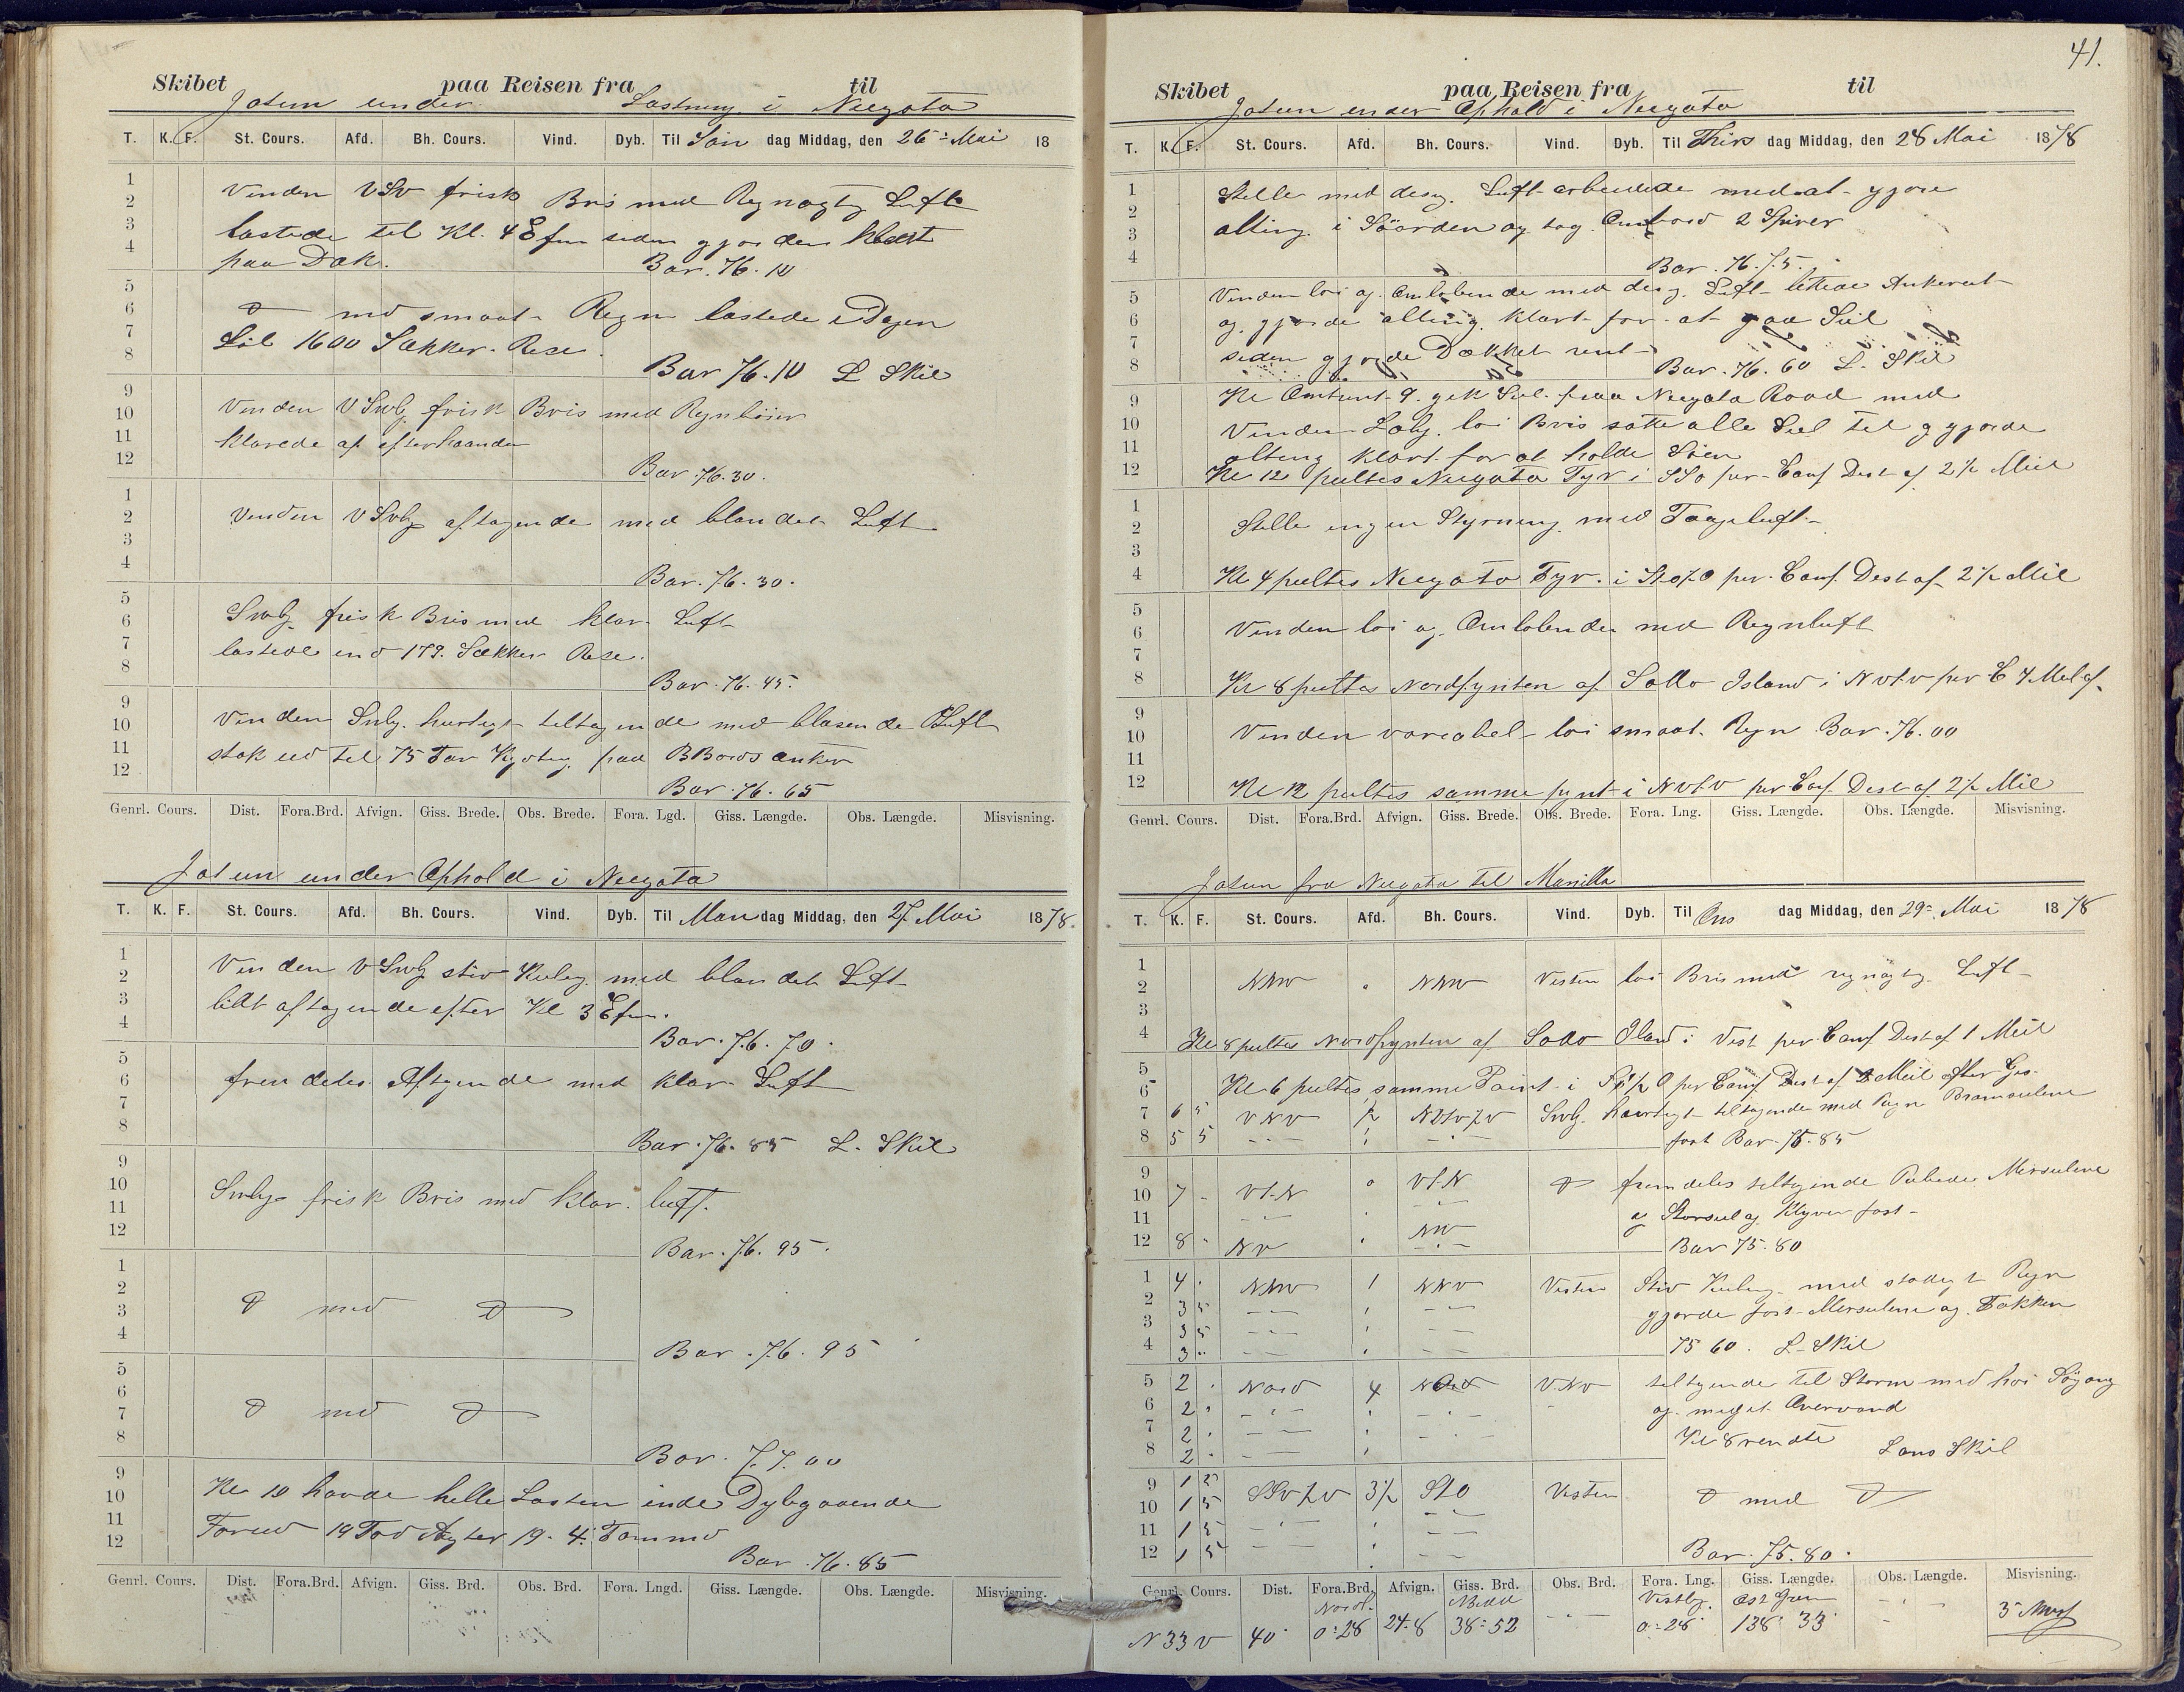 Skibet paa Reisen fra til
Jotun under Lastning i Neegata
T. K. F. St. Cours. Afd. Bh. Cours. Vind. Dyb. Til Søn dag Middag, den 26 Mai 18
1
2 Vinden VSv frisk Bris med Regnagtig Luft
3 lastede til Kl. 4 Efm siden gjorden klart
4 paa Dæk. Bar. 76.10
5
6 D med smaat Regn lastede i Dagen
7 Lil 1600 Sækker Rese.
8 Bar 76.10 L Skil
9
10 Vinden VSvlg frisk Bris med Regnbeier
11 klarede af efterhaanden
12 Bar. 76.30.
1
2 Vinden VSvlg aftagende med blandet Luft
3
4 Bar. 76.30.
5
6 Svlg frisk Bris med klar Luft
7 lastede end 179. Sækker Rese.
8 Bar. 76.45.
9
10 Vinden Svlg. hurtigt tiltagende med blasende Luft
11 stak ud til 75 Fav Kjetig paa BBords anker
12 Bar. 76.65
Genrl. Cours. Dist. Fora.Brd. Afvign. Giss. Brede. Obs. Brede. Fora. Lgd. Giss. Længde. Obs. Længde. Misvisning.
Jotun under Ophold i Neegata
T. K. F. St. Cours. Afd. Bh. Cours. Vind. Dyb. Til Man dag Middag, den 27 Mai 1878.
1
2 Vinden VSvlg stiv Kuling med blandet Luft
3 lidt aftagende efter Kl 3 Efm.
4 Bar. 76.70.
5
6 fremdeles Aftgende med klar Luft
7
8 Bar. 76.85 L. Skil
9
10 Svlg frisk Bris med klar luft.
11
12 Bar. 76.95.
1
2
3 D med D
4 Bar. 76.95
5
6
7 D med D
8 Bar. 77.00
9
10 Kl 10 havde helle Lasten inde Dybgaaende
11 Forud 19 Fod Agter 19.4. Tommo
12 Bar. 76.85
Genrl. Cours. Dist. Fora.Brd. Afvign. Giss. Brd. Obs. Brd. Fora. Lngd. Giss. Længde. Obs. Længde. Misvisning.
41.
Skibet paa Reisen fra til
Jotun under Ophold i Neegata
T. K. F. St. Cours. Afd. Bh. Cours. Vind. Dyb. Til Thirs dag Middag, den 28 Mai 1878
1 Stille med desig. Luft arbeidede med at gjøre
2
3 alting i Søorden og tog Ombord 2 Spirer
4 Bar. 76.75.
5 Vinden løi og Omløbende med desig. Luft lettede Ankeret
6 og gjorde alting klart for at gaa Seil
7 siden gjorde Dækket rent
8 Bar. 76.60 L. Skil
9 Kl Omtrent 9. gik Seil fraa Neegata Raad med
10 Vinden Lølg. løi Bris satte alle Seil til og gjorde
11 alting klart for at holde Søen
12 Kl 12 peiltes Neegata Fyr i SSo per Comp Dest af 2½ Miil
1
2 Stille ingen Styrning med Taageluft
3
4 Kl 4 peiltes Neegata Fyr. i StO½O per Comp. Dest af 2½ Mil
5
6 Vinden løi og Omløbende med Regnluft
7
8 Kl 8 peiltes Nordpynten af Sado Island i NVtV per C 4 Mil af.
9
10 Vinden variabel løi smaat Regn Bar. 76.00
11
12 Kl 12 peiltes samme pynt i NVtV per Comp. Dest af 2½ Mil
Genrl. Cours. Dist. Fora.Brd. Afvign. Giss. Brede. Obs. Brede. Fora. Lng. Giss. Længde. Obs. Længde. Misvisning.
Jotun fra Neegata til Manilla
T. K. F. St. Cours. Afd. Bh. Cours. Vind. Dyb. Til Ons dag Middag, den 29 Mai 1878
1
2 NNV NNV Vesten løi Bris med regnagtig Luft
3
4 Kl 8 peiltes Nordpynten af Sado Øland i Vest per Comp Dest af 1 Meil
5
6 Kl 6 peiltes samme Point i O per Comp Dest af 2 Meil after Gis.
7 6 5 VNV ½ NVtV½V Svlg. hurtigt tiltagende med Regn Bramseilene
8 5 5 fast Bar. 75.85
9
10 7 VtN VtN D fremdeles tiltgende Mersseilene
11 og Storseil og Klyver fast
12 8 NV NV Bar 75.80
1 4 NNV 1 NNV Vesten Stiv Kuling med stadigt Regn
2 3 5 gjorde fast Mersseilene og Fokken
3 3 5
4 3 75 60. L Skil
5 2 Nord 4 Nord VNV tiltgende til Storm med høi Søgang
6 2 og meget Overvand
7 2 Kl 8 vendte
8 2 Lans Skil
9 1 5 SSv½v 3½ StO Vesten D med D
10 1 5
11 1 5
12 1 5 Bar. 75.80.
Genrl. Cours. Dist. Fora.Brd. Afvign. Giss. Brd. Obs. Brd. Fora. Lng. Giss. Længde. Obs. Længde. Misvisning.
Nord. Vestlig. Øst Gren
N 33 V 40 0=28 24.8 38=52 0=28 138 33 3